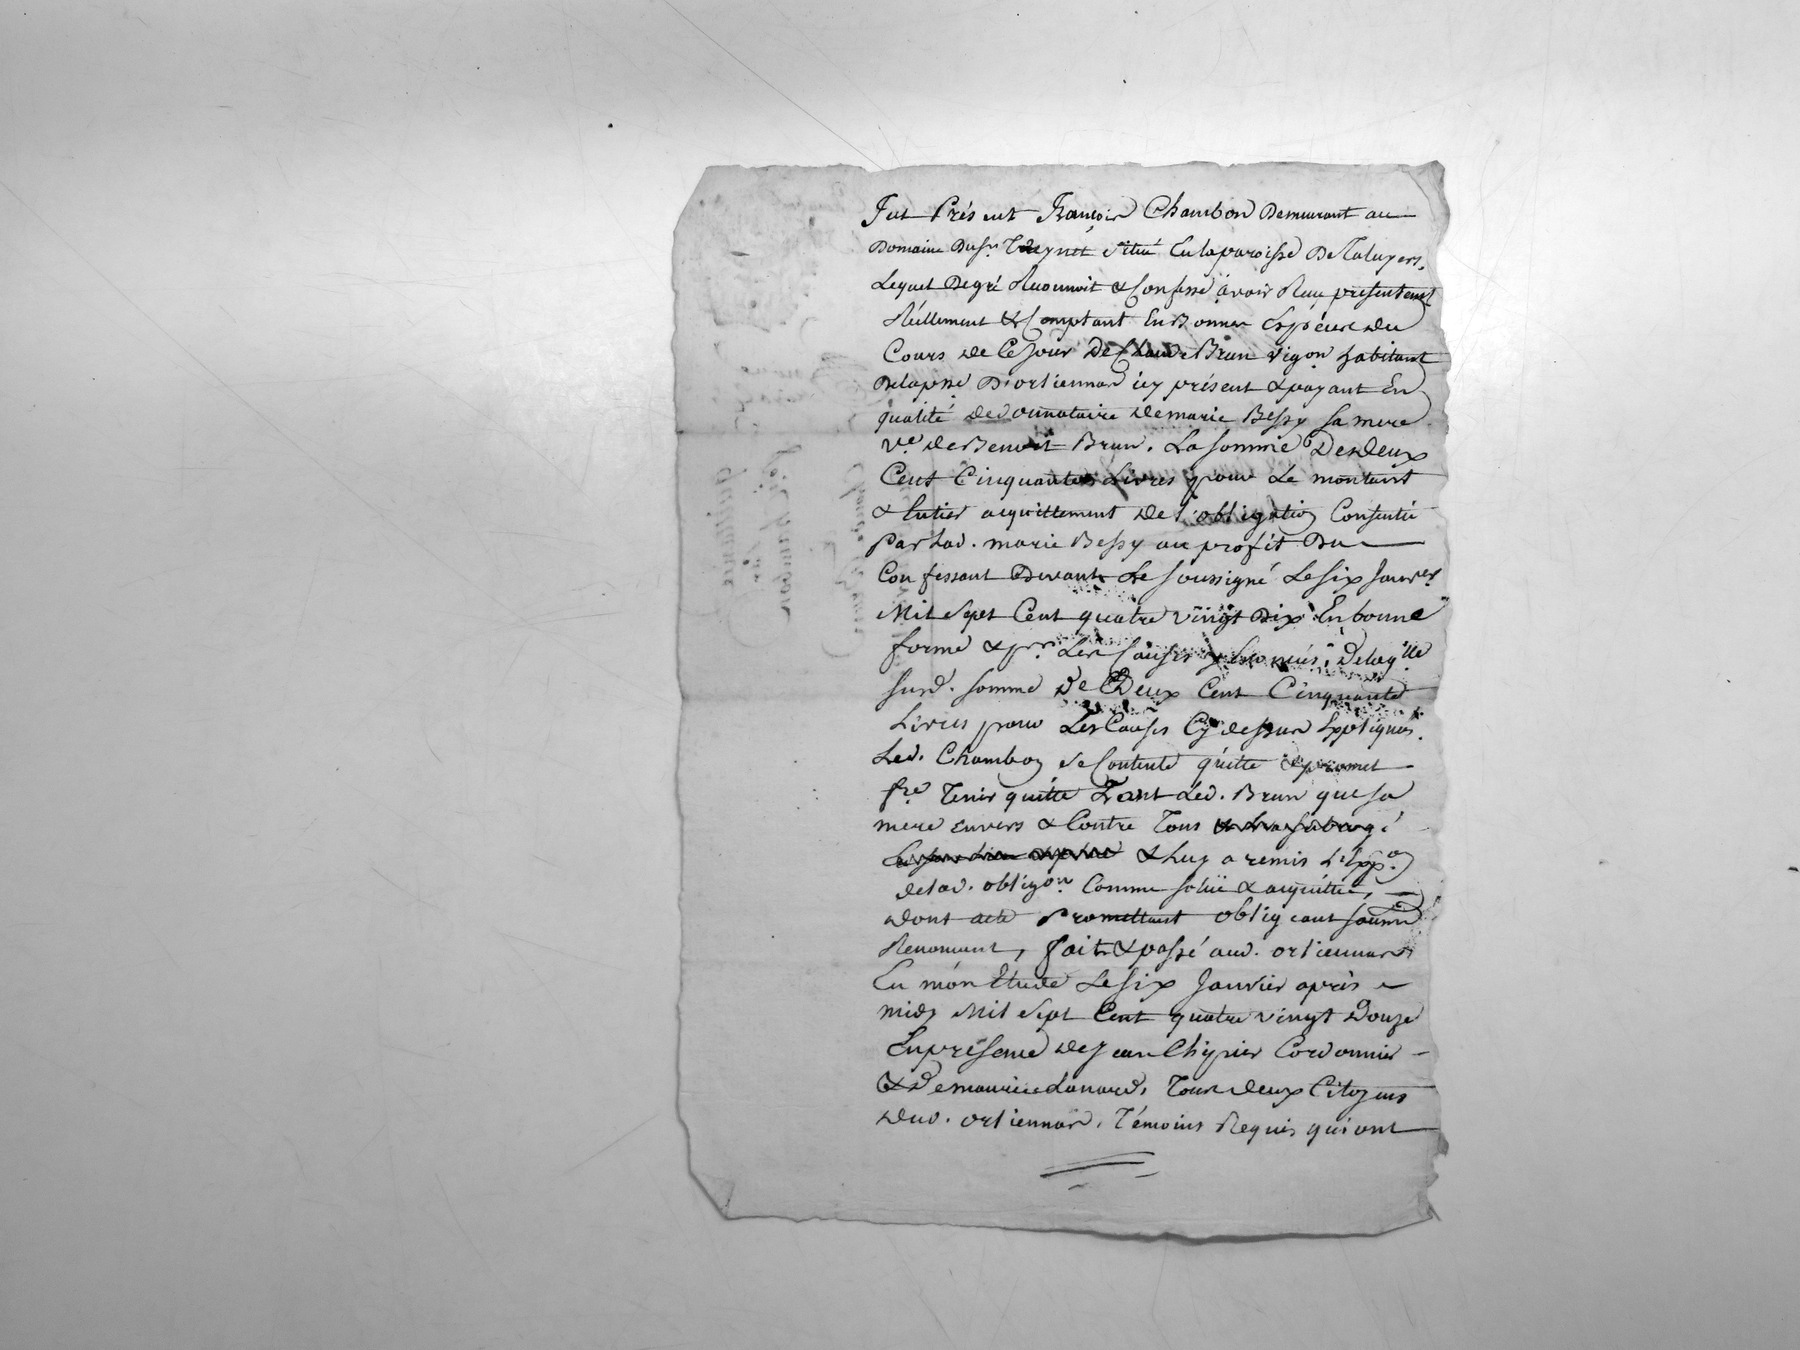 Fut Présent François Chambon Demeurant au
Domaine Du Sr. situé En la paroisse De Taluyers,
Lequel De gré Reconnoit & Confesse avoir Reçu presentemt
Réellement & Comptant En Bonnes Espèces du
Cours de Ce Jour De Claude Brun vigon habitant
De la psse D'orliennas icy présent & payant En
qualité de donnataire de marie Bessy sa mere
ve. de Benoit Brun. La somme De deux
Cent Cinquante Livres pour Le montant
& Entier acquittement de l'obligation Consentie
Par Lad. marie Bessy au profit Du
Confessant Devant Le soussigné Le six Janver
Mil sept Cent quatre vingt Dix En bonne
forme & pr. Les Causes y Enoncés, De laqlle
susd. somme de Deux Cent Cinquante
Livres pour Les Causes Cy dessus Expliqués
Led. Chambon se Contente quitte & promet
fre. Tenir quitte Tant Led. Brun que sa
mere Envers & Contre Tous
& Luy a remis L'Exp.on
de lad. obligon. Comme soluë & acquittée,
dont acte Promettant obligeant soumt
Renonçant, fait & passé aud. orliennas
En món Etude Le six Janvier après
midy Mil sept Cent quatre vingt Douze
En présence de Jean Chipier Cordonnier
& De maurice Lanard, Tous deux Citoyens
dud. orliennas, Témoins Requis qui ont